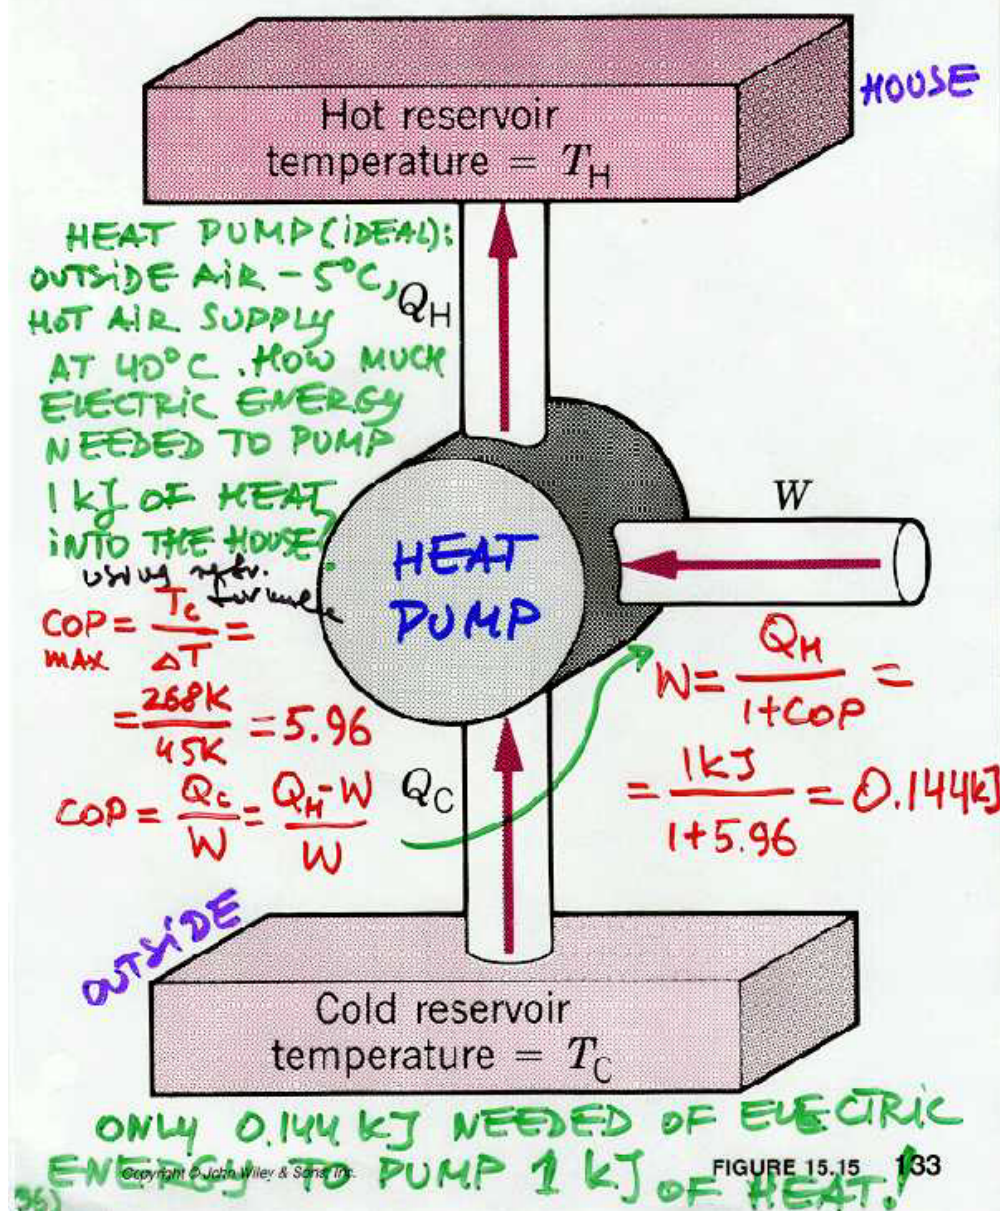 HOUSE
Hot reservoir
temperature = T_H
HEAT PUMP (IDEAL):
OUTSIDE AIR -5°C,
HOT AIR SUPPLY
AT 40°C. HOW MUCH
ELECTRIC ENERGY
NEEDED TO PUMP
1 kJ OF HEAT
INTO THE HOUSE?
Q_H
W
HEAT
PUMP
using
COP = T_C / ΔT =
MAX
= 268K / 45K = 5.96
COP = Q_C / W = Q_H - W / W
Q_C
W = Q_H / 1+COP =
= 1kJ / 1+5.96 = 0.144kJ
OUTSIDE
Cold reservoir
temperature = T_C
ONLY 0.144 kJ NEEDED OF ELECTRIC
ENERGY TO PUMP 1 kJ OF HEAT!
Copyright © John Wiley & Sons, Inc.
FIGURE 15.15 133
36)